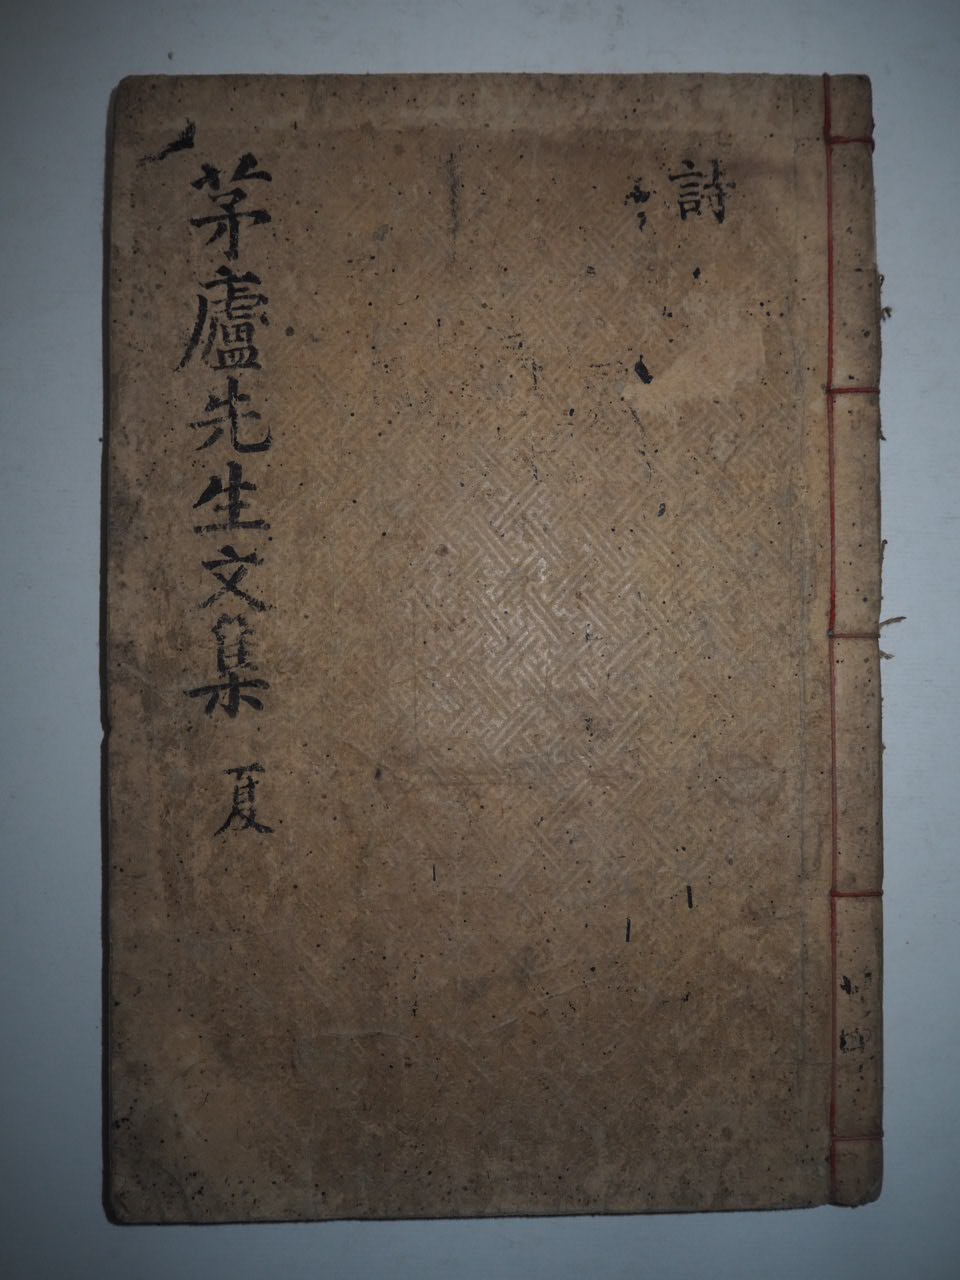 詩
茅廬先生文集 夏